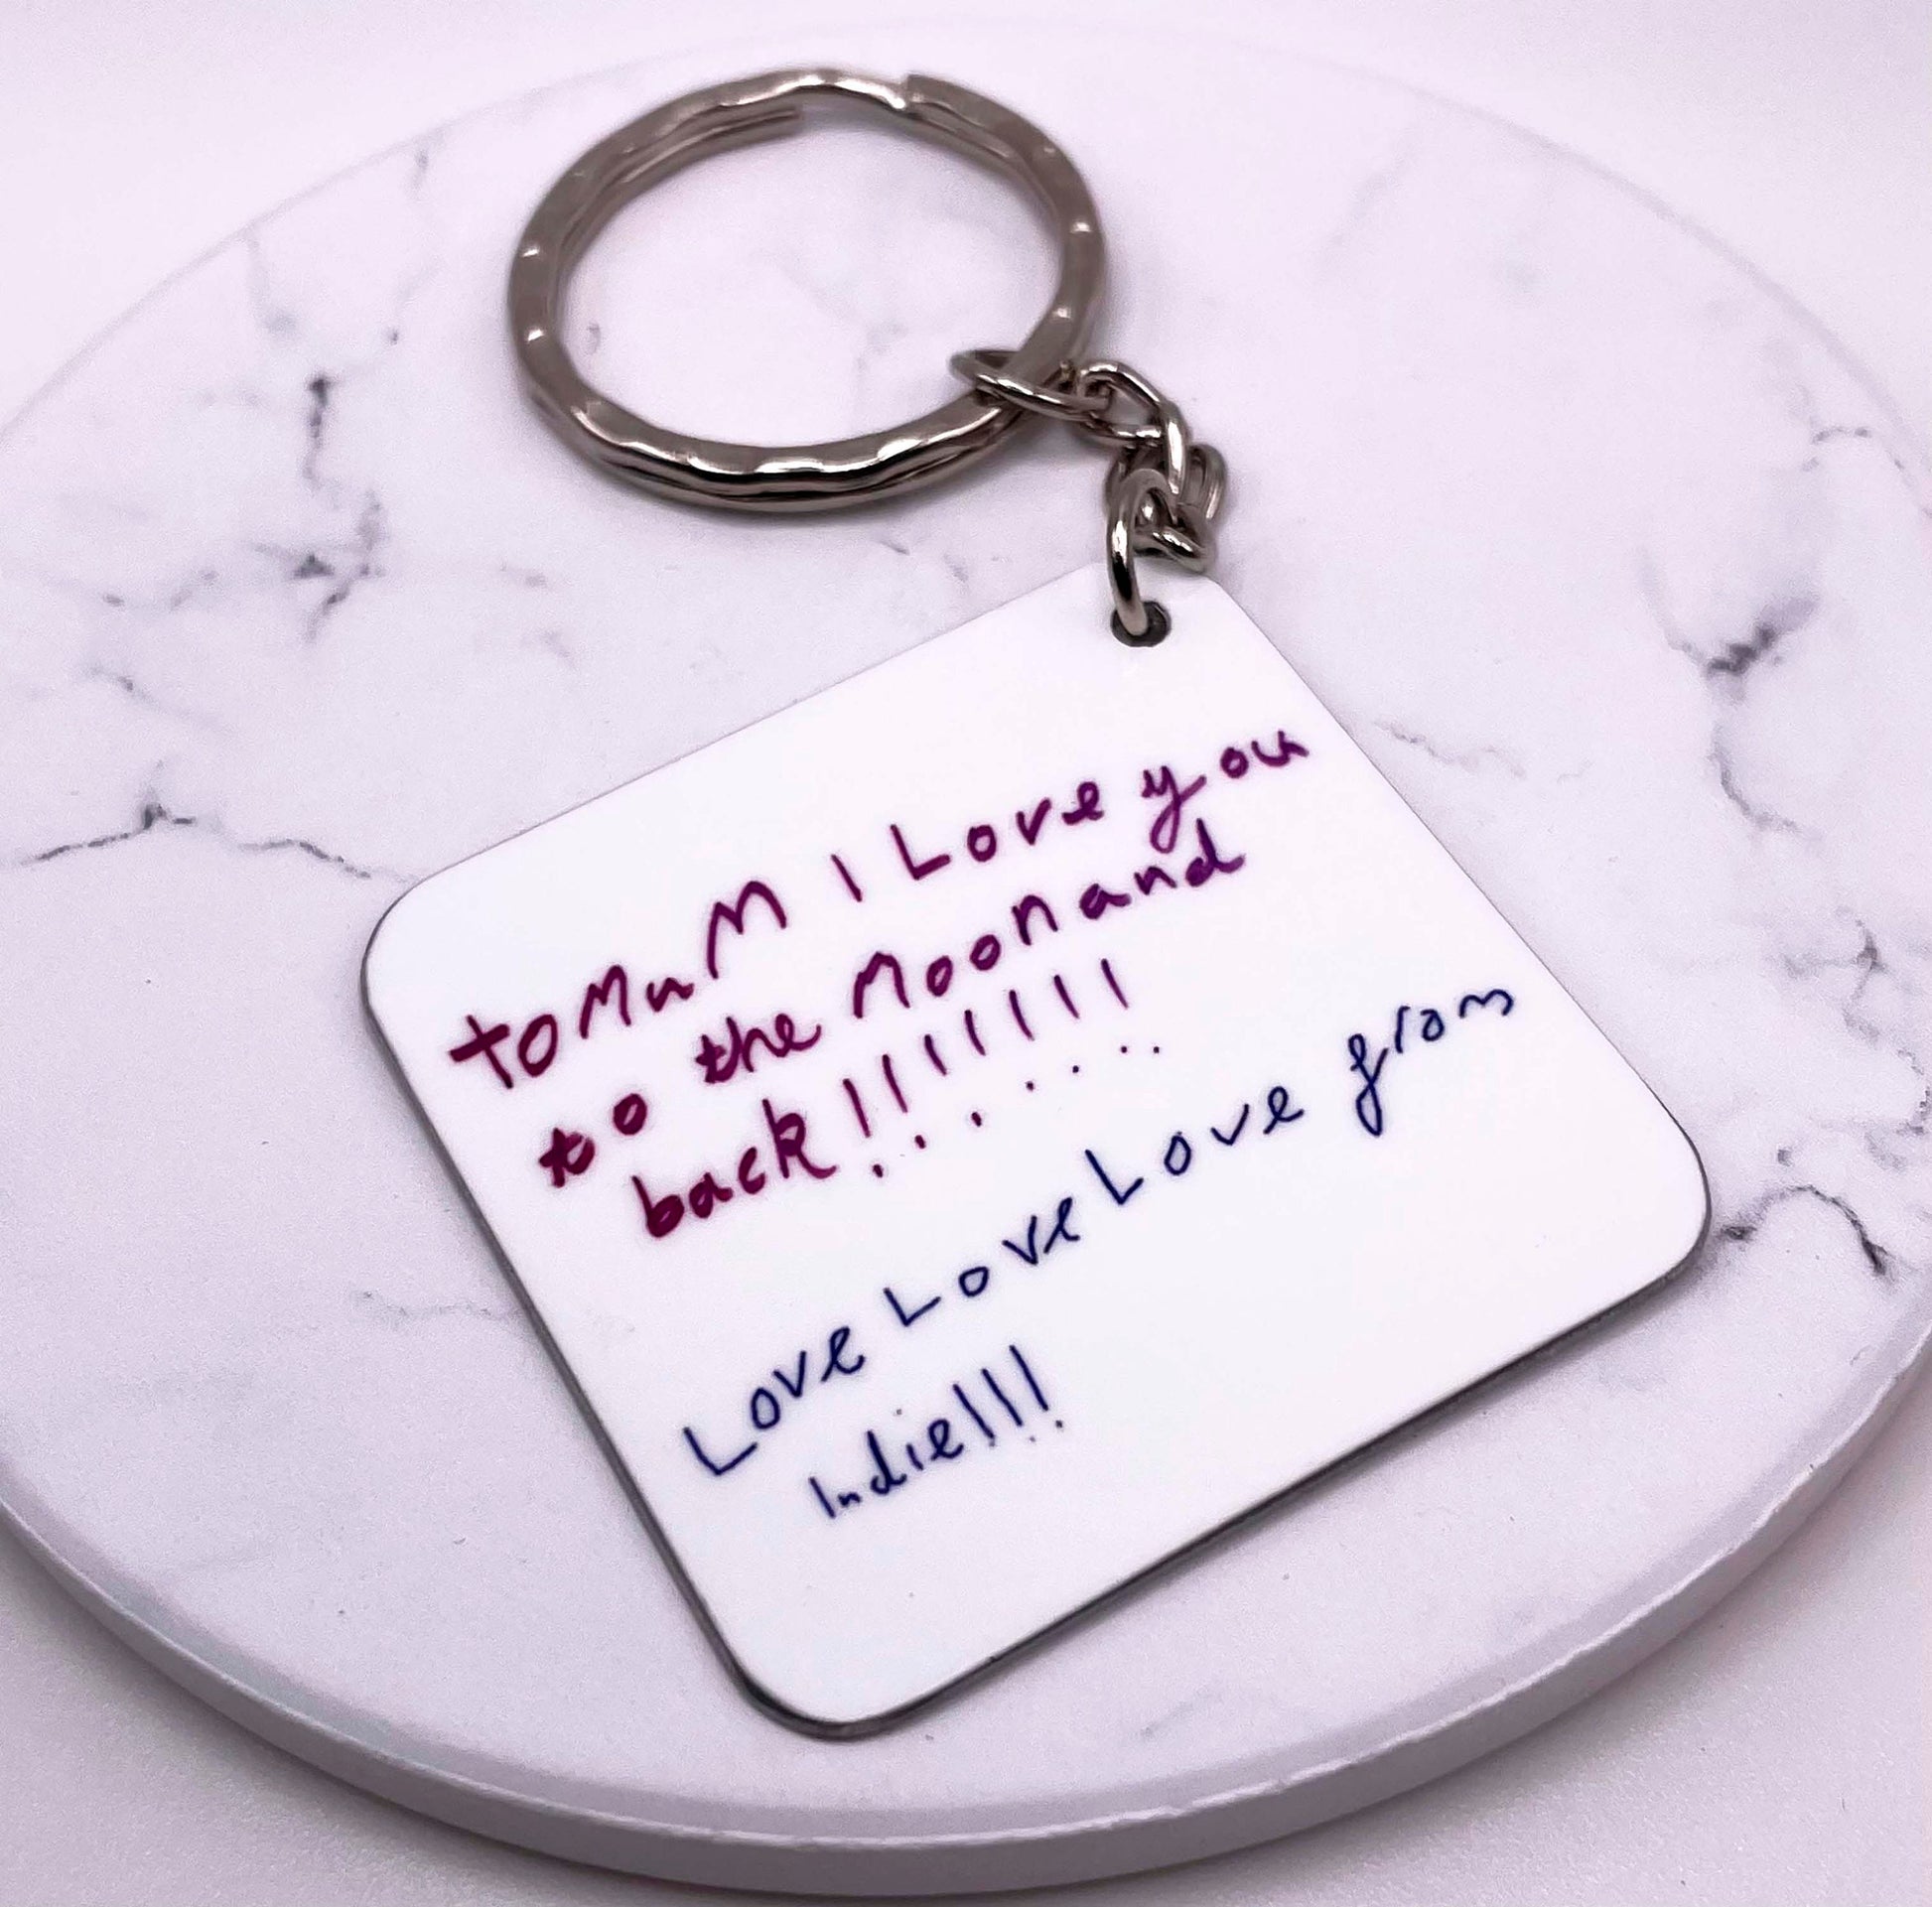 to MuM I Love you
to the Moon and
back!!!!!!!
Love Love Love from
Indie!!!